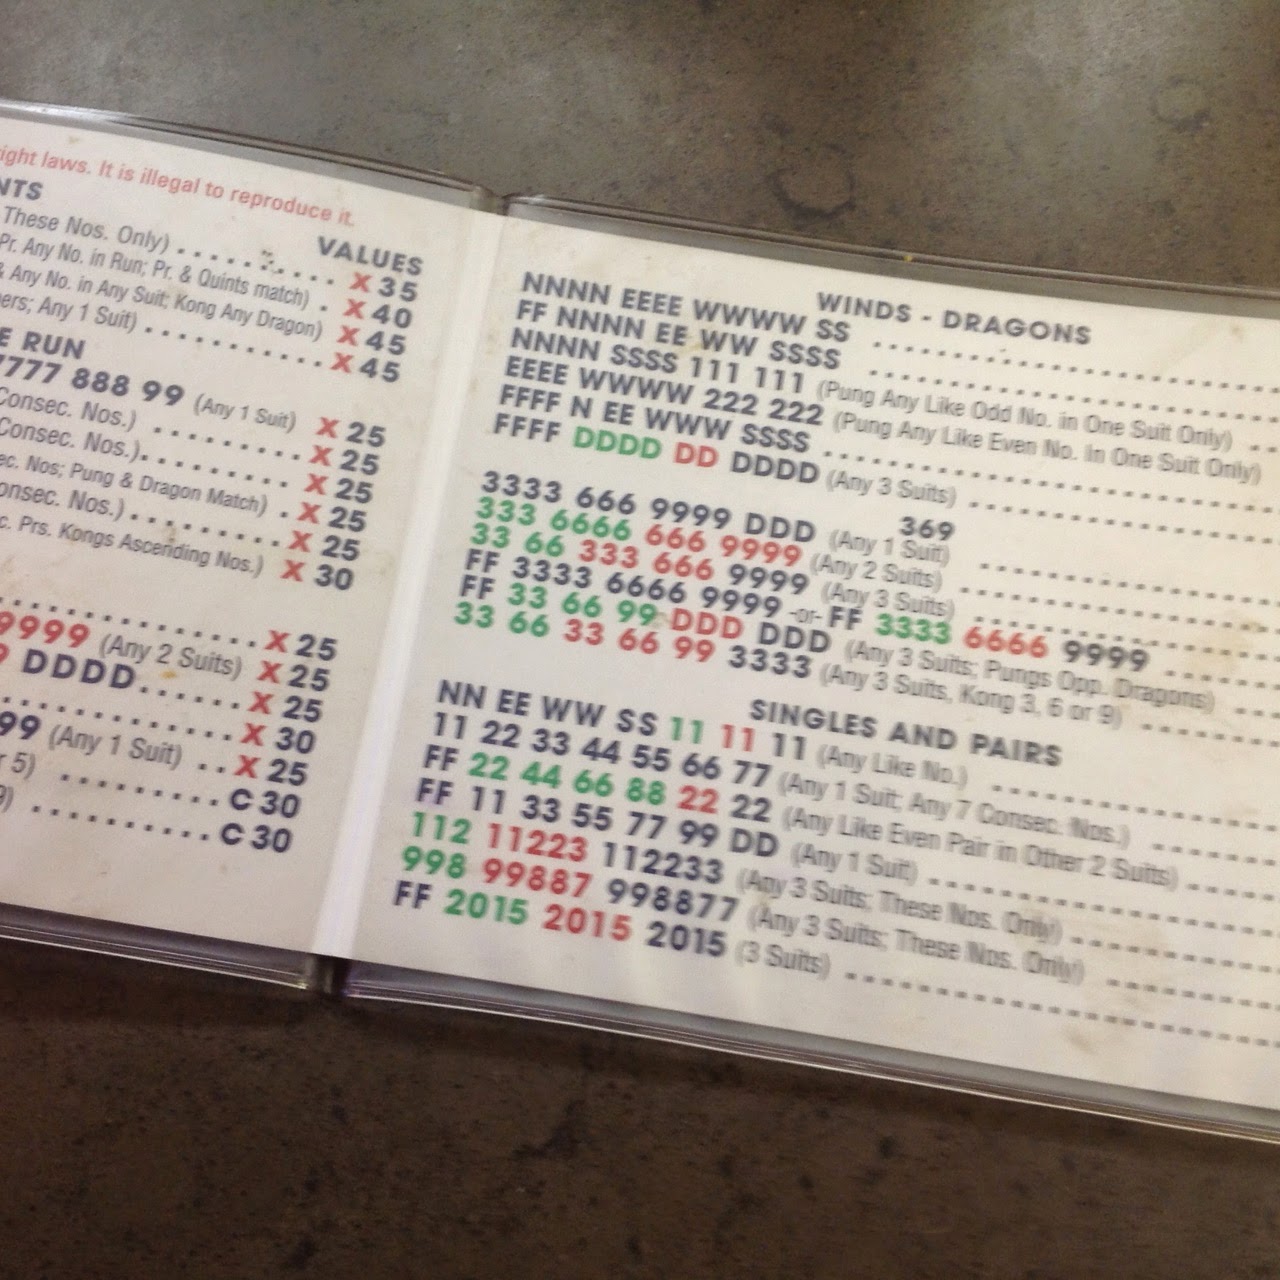 ight laws. It is illegal to reproduce it.
NTS
VALUES
These Nos. Only) ............ X 35
Pr. Any No. in Run; Pr. & Quints match) . X 40
& Any No. in Any Suit; Kong Any Dragon) X 45
ers; Any 1 Suit) ............ X 45
E RUN
7777 888 99 (Any 1 Suit) X 25
Consec. Nos.) ......... X 25
Consec. Nos.)......... X 25
ec. Nos; Pung & Dragon Match) . X 25
onsec. Nos.)......... X 25
c. Prs. Kongs Ascending Nos.) X 30
............ X 25
9999 (Any 2 Suits) X 25
9 DDDD..... X 25
............ X 30
99 (Any 1 Suit) .. X 25
r 5) ......... C 30
9) ............ C 30
WINDS - DRAGONS
NNNN EEEE WWWW SS
FF NNNN EE WW SSSS
NNNN SSSS 111 111 (Pung Any Like Odd No. in One Suit Only)
EEEE WWWW 222 222 (Pung Any Like Even No. In One Suit Only)
FFFF N EE WWW SSSS
FFFF DDDD DD DDDD (Any 3 Suits)
369
3333 666 9999 DDD (Any 1 Suit)
333 6666 666 9999 (Any 2 Suits)
33 66 333 666 9999 (Any 3 Suits)
FF 3333 6666 9999 -or- FF 3333 6666 9999
FF 33 66 99 DDD DDD (Any 3 Suits; Pungs Opp. Dragons)
33 66 33 66 99 3333 (Any 3 Suits, Kong 3, 6 or 9)
SINGLES AND PAIRS
NN EE WW SS 11 11 11 (Any Like No.)
11 22 33 44 55 66 77 (Any 1 Suit; Any 7 Consec. Nos.)
FF 22 44 66 88 22 22 (Any Like Even Pair in Other 2 Suits)
FF 11 33 55 77 99 DD (Any 1 Suit)
112 11223 112233 (Any 3 Suits; These Nos. Only)
998 99887 998877 (Any 3 Suits; These Nos. Only)
FF 2015 2015 2015 (3 Suits)